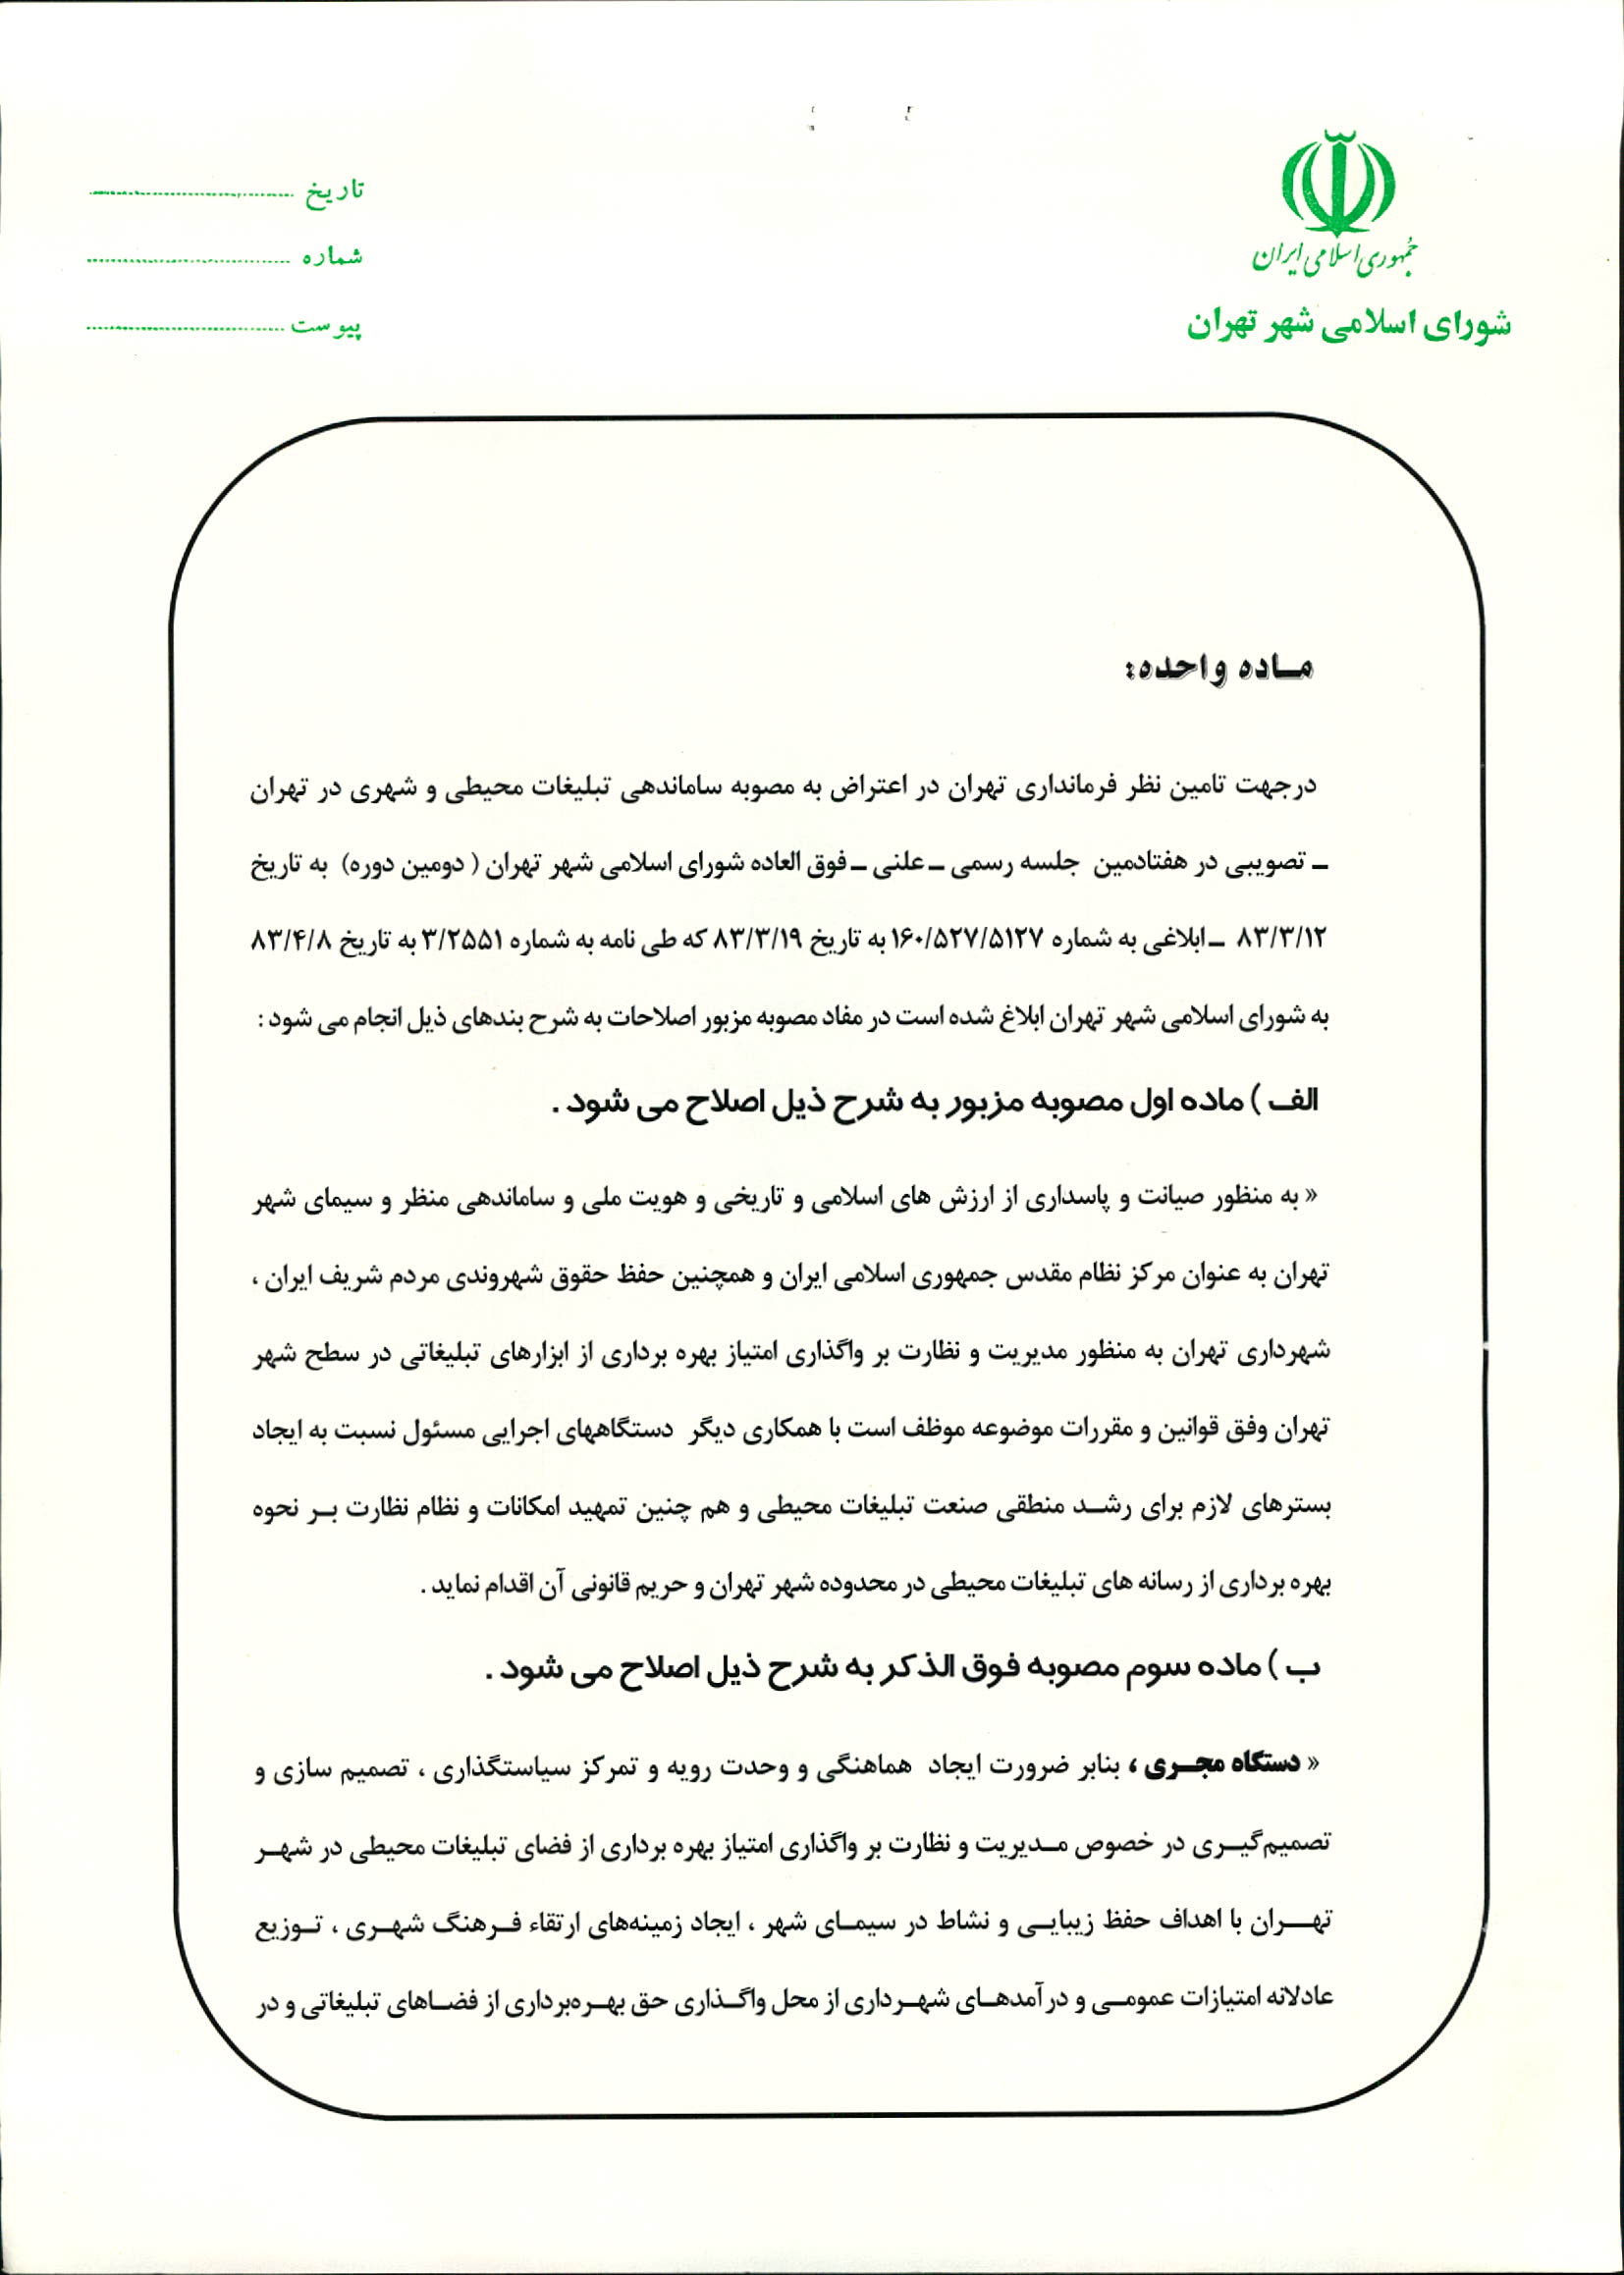 جمهوری اسلامی ایران
شورای اسلامی شهر تهران
تاریخ ........................
شماره ........................
پیوست ........................
مــاده واحده:
درجهت تامین نظر فرمانداری تهران در اعتراض به مصوبه ساماندهی تبلیغات محیطی و شهری در تهران
ـ تصویبی در هفتادمین جلسه رسمی ـ علنی ـ فوق العاده شورای اسلامی شهر تهران ( دومین دوره) به تاریخ
۸۳/۳/۱۲ ـ ابلاغی به شماره ۱۶۰/۵۲۷/۵۱۲۷ به تاریخ ۸۳/۳/۱۹ که طی نامه به شماره ۳/۲۵۵۱ به تاریخ ۸۳/۴/۸
به شورای اسلامی شهر تهران ابلاغ شده است در مفاد مصوبه مزبور اصلاحات به شرح بندهای ذیل انجام می شود :
الف ) ماده اول مصوبه مزبور به شرح ذیل اصلاح می شود .
« به منظور صیانت و پاسداری از ارزش های اسلامی و تاریخی و هویت ملی و ساماندهی منظر و سیمای شهر
تهران به عنوان مرکز نظام مقدس جمهوری اسلامی ایران و همچنین حفظ حقوق شهروندی مردم شریف ایران ،
شهرداری تهران به منظور مدیریت و نظارت بر واگذاری امتیاز بهره برداری از ابزارهای تبلیغاتی در سطح شهر
تهران وفق قوانین و مقررات موضوعه موظف است با همکاری دیگر دستگاههای اجرایی مسئول نسبت به ایجاد
بسترهای لازم برای رشــد منطقی صنعت تبلیغات محیطی و هم چنین تمهید امکانات و نظام نظارت بــر نحوه
بهره برداری از رسانه های تبلیغات محیطی در محدوده شهر تهران و حریم قانونی آن اقدام نماید .
ب ) ماده سوم مصوبه فوق الذکر به شرح ذیل اصلاح می شود .
« دستگاه مجــری ، بنابر ضرورت ایجاد هماهنگی و وحدت رویه و تمرکز سیاستگذاری ، تصمیم سازی و
تصمیم‌گیــری در خصوص مــدیریت و نظارت بر واگذاری امتیاز بهره برداری از فضای تبلیغات محیطی در شهــر
تهـــران با اهداف حفظ زیبایــی و نشاط در سیمــای شهر ، ایجاد زمینه‌های ارتقاء فــرهنگ شهــری ، تــوزیع
عادلانه امتیازات عمومــی و درآمدهــای شهــرداری از محل واگــذاری حق بهــره‌برداری از فضــاهای تبلیغاتی و در